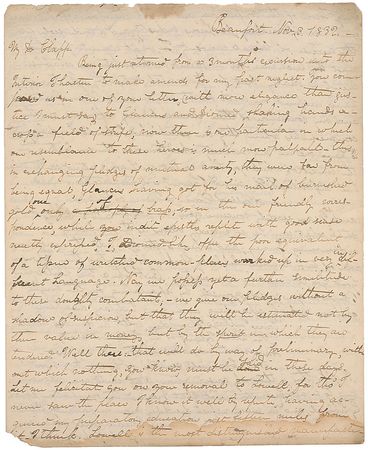 Beaufort, Nov. 3. 1832. —
My Dr Clapp.
Being just returned from a 3 months excursion into the
Interior I hasten to make amends for my past neglect. You com-
pared us in one of your letters, with more elegance than jus-
tice I must say to Glaucus and Diomed shaking hands a-
cross a field of strife, now there is one particular in which
our resemblance to those heroes is much more palpable — thus
in exchanging pledges of mutual amity, they were far from
being equal Glaucus having got for his mail of burnished
gold only one of brass, so in our friendly corres-
pondence, which you indite epistles replete with good sense
neatly expressed, I Diomed like, offer the poor equivalent
of a tissue of wretched common places worked up in very indif-
ferent Language. Nay we perhaps yet a further similitude
to these doughty combatants, — we give our pledges without a
shadow of suspicion, but that they will be estimated not by
their value in money, but by the spirit in which they are
tendered. Well there, that will do by way of preliminary with-
out which nothing, you know, must be done in these days.
Let me felicitate you on your removal to Lowell, for tho' I
never saw the place I know it well by
my preparatory education not miles from
it I think. Lowell is the most